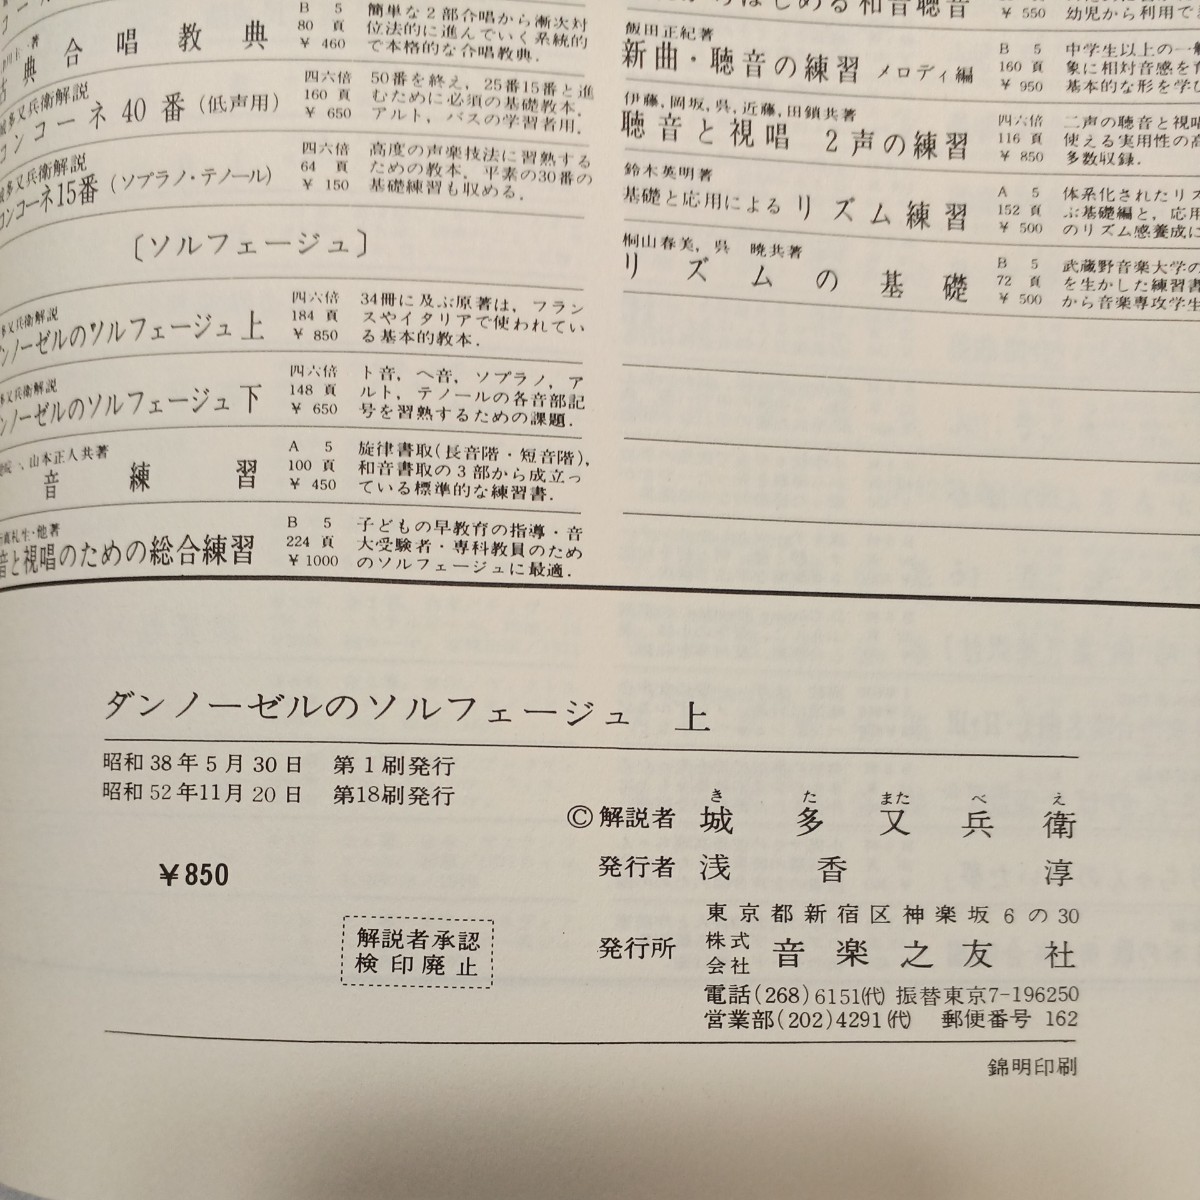 合唱教典
B 5
80 頁
¥ 460
簡単な2部合唱から漸次対
位法的に進んでいく系統的
で本格的な合唱教典.
城多又兵衛解説
コンコーネ 40 番 (低声用)
四六倍
160 頁
¥ 650
50番を終え, 25番15番と進
むために必須の基礎教本.
アルト, バスの学習者用.
城多又兵衛解説
コンコーネ15番 (ソプラノ・テノール)
四六倍
64 頁
¥ 150
高度の声楽技法に習熟する
ための教本. 平素の30番の
基礎練習も収める.
〔ソルフェージュ〕
多又兵衛解説
ンノーゼルのソルフェージュ 上
四六倍
184 頁
¥ 850
34冊に及ぶ原著は, フラン
スやイタリアで使われてい
る基本的教本.
多又兵衛解説
ンノーゼルのソルフェージュ 下
四六倍
148 頁
¥ 650
ト音, ヘ音, ソプラノ, ア
ルト, テノールの各音部記
号を習熟するための課題.
山本正人共著
音練習
A 5
100 頁
¥ 450
旋律書取(長音階・短音階),
和音書取の3部から成立っ
ている標準的な練習書.
札生・他著
音と視唱のための総合練習
B 5
224 頁
¥ 1000
子どもの早教育の指導・音
大受験者・専科教員のため
のソルフェージュに最適.
はじめる和音聴音
¥ 550
幼児から利用で
飯田正紀著
新曲・聴音の練習 メロディ編
B 5
160 頁
¥ 950
中学生以上の一般
象に相対音感を育
基本的な形を学び
伊藤, 岡坂, 呉, 近藤, 田鎖共著
聴音と視唱 2声の練習
四六倍
116 頁
¥ 850
二声の聴音と視唱
使える実用性の高
多数収録.
鈴木英明著
基礎と応用による リズム練習
A 5
152 頁
¥ 500
体系化されたリズ
ぶ基礎編と, 応用
のリズム感養成に
桐山春美, 呉 暁共著
リズムの基礎
B 5
72 頁
¥ 500
武蔵野音楽大学の
を生かした練習書
から音楽専攻学生
ダンノーゼルのソルフェージュ 上
昭和38年5月30日 第1刷発行
昭和52年11月20日 第18刷発行
¥850
解説者承認
検印廃止
き た また べ え
©解説者 城多又兵衛
発行者 浅香淳
東京都新宿区神楽坂6の30
発行所 株式会社 音楽之友社
電話(268)6151(代) 振替東京7-196250
営業部(202)4291(代) 郵便番号 162
錦明印刷